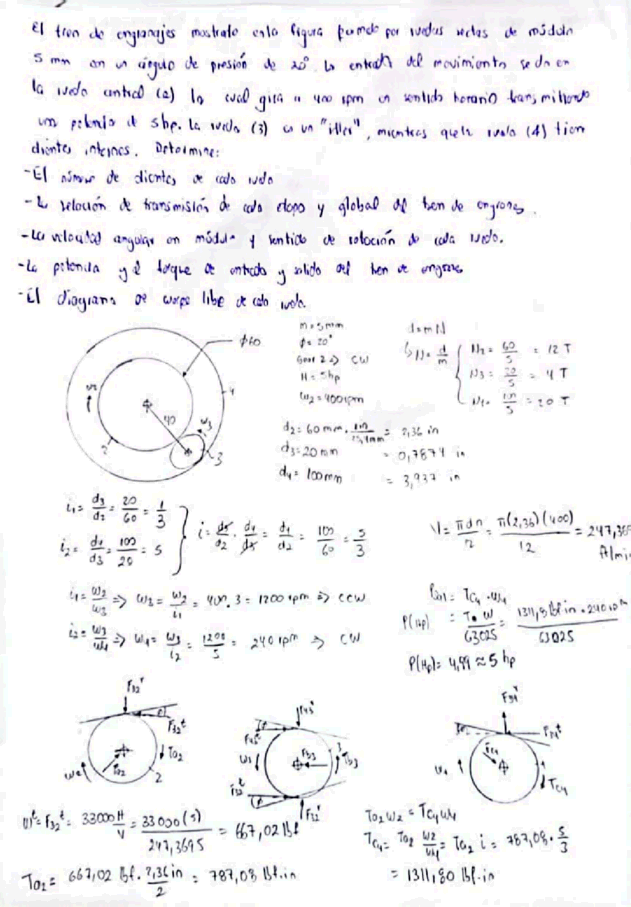 El tren de engranajes mostrado en la figura formado por ruedas rectas de módulo
5 mm con un ángulo de presión de 20°. La entrada del movimiento se da en
la rueda central (2) la cual gira a 400 rpm en sentido horario transmitiendo
una potencia de 5hp. La rueda (3) es un "idler", mientras que la rueda (4) tiene
dientes internos. Determine:
-El número de dientes de cada rueda
-La relación de transmisión de cada etapa y global del tren de engranes.
-La velocidad angular en módulo y sentido de rotación de cada rueda.
-La potencia y el torque de entrada y salida del tren de engranes
-El diagrama de cuerpo libre de cada rueda.
ϕ60
4
40
ω3
3
2
m = 5mm
ϕ = 20°
Gear 2 => CW
H = 5hp
ω2 = 400rpm
d = mN
N = d/m
N2 = 60/5 = 12 T
N3 = 20/5 = 4 T
N4 = 100/5 = 20 T
d2 = 60 mm . 1in/25,4mm = 2,36 in
d3 = 20 mm = 0,7874 in
d4 = 100mm = 3,937 in
i1 = d3/d2 = 20/60 = 1/3
i2 = d4/d3 = 100/20 = 5
i = d3/d2 . d4/d3 = d4/d2 = 100/60 = 5/3
V = πdn/12 = π(2,36)(400)/12 = 247,369 ft/min
i1 = ω2/ω3 => ω3 = ω2/i1 = 400 . 3 = 1200 rpm => CCW
i2 = ω3/ω4 => ω4 = ω3/i2 = 1200/5 = 240 rpm => CW
= TC4 . ω4
P(Hp) = T . ω/63025 = 1311,8 lbf in . 240 rpm/63025
P(Hp) = 4,99 ≈ 5 hp
F32r
F32t
Ta2
ω2
2
F43r
F43t
ω3
Fb3
3
Tb3
F32t
F32r
F34r
F34t
Fc4
ω4
TC4
Wt = F32t = 33000 H/V = 33000(5)/247,3695 = 667,02 lbf
Ta2 = 667,02 lbf . 2,36 in/2 = 787,08 lbf.in
Ta2 ω2 = TC4 ω4
TC4 = Ta2 ω2/ω4 = Ta2 i = 787,08 . 5/3
= 1311,80 lbf-in